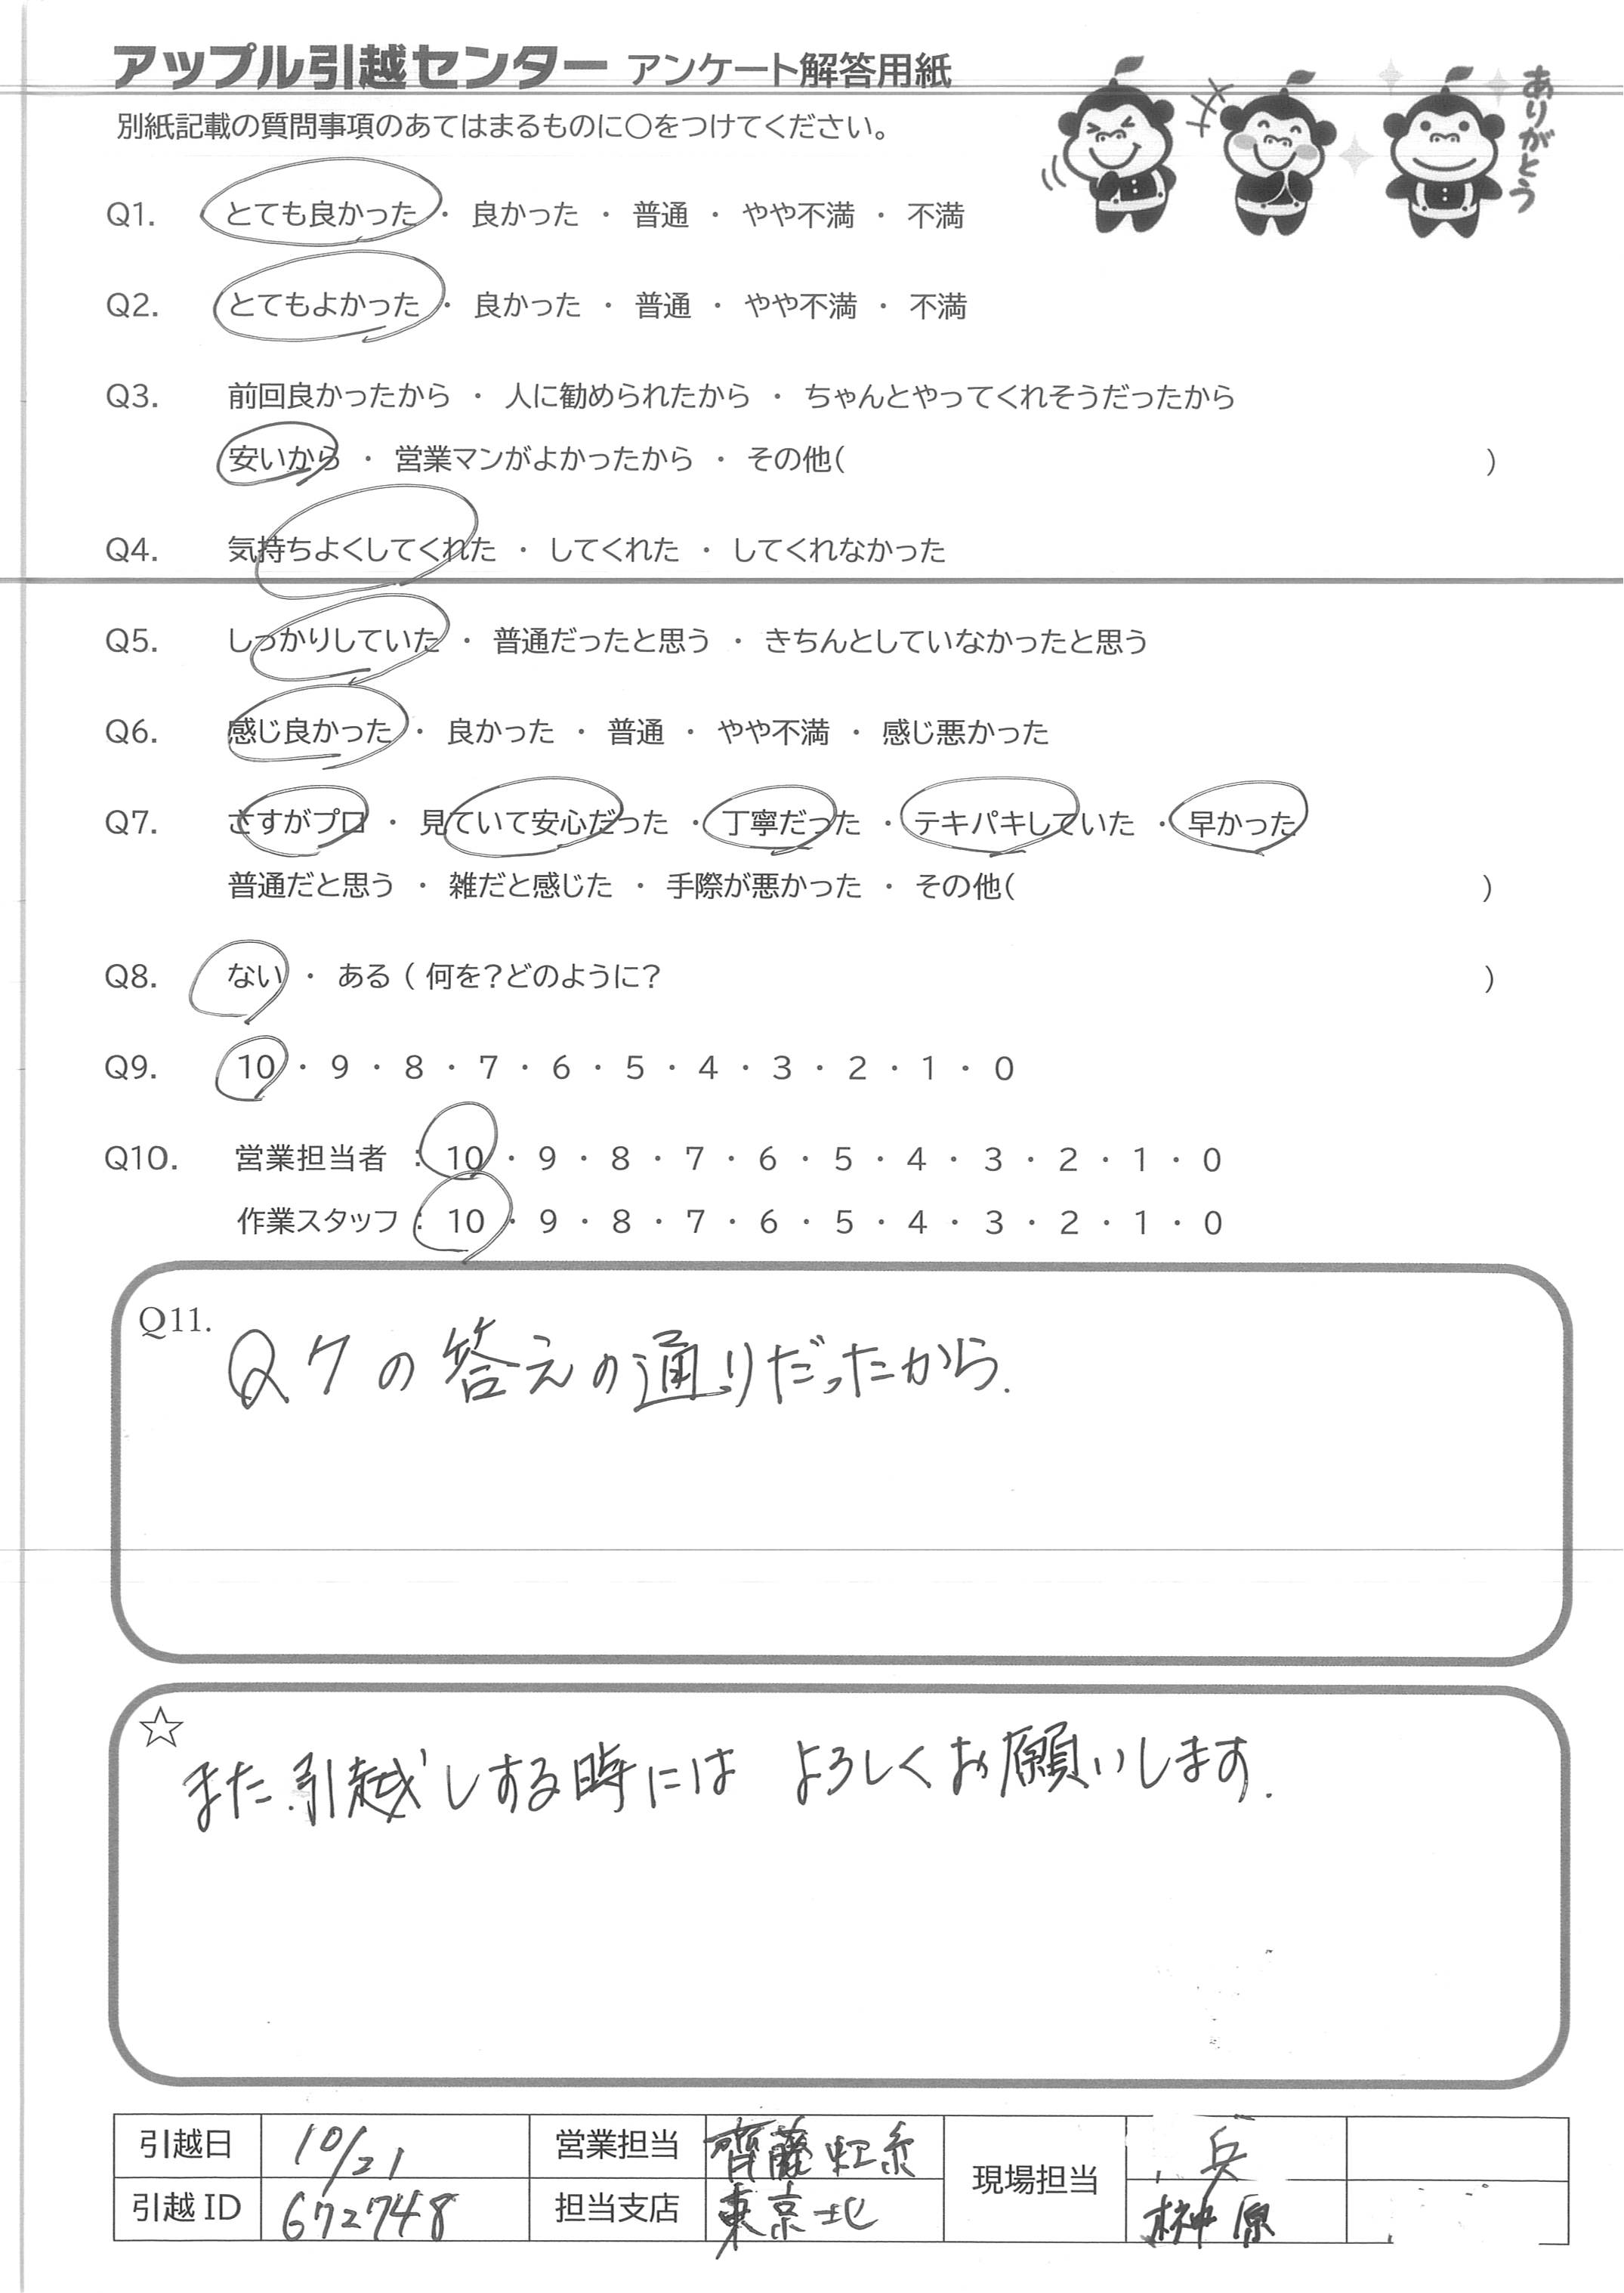 アップル引越センター アンケート解答用紙
別紙記載の質問事項のあてはまるものに○をつけてください。
ありがとう
Q1. とても良かった ・ 良かった ・ 普通 ・ やや不満 ・ 不満
Q2. とてもよかった ・ 良かった ・ 普通 ・ やや不満 ・ 不満
Q3. 前回良かったから ・ 人に勧められたから ・ ちゃんとやってくれそうだったから
安いから ・ 営業マンがよかったから ・ その他( )
Q4. 気持ちよくしてくれた ・ してくれた ・ してくれなかった
Q5. しっかりしていた ・ 普通だったと思う ・ きちんとしていなかったと思う
Q6. 感じ良かった ・ 良かった ・ 普通 ・ やや不満 ・ 感じ悪かった
Q7. さすがプロ ・ 見ていて安心だった ・ 丁寧だった ・ テキパキしていた ・ 早かった
普通だと思う ・ 雑だと感じた ・ 手際が悪かった ・ その他( )
Q8. ない ・ ある ( 何を?どのように? )
Q9. 10 ・ 9 ・ 8 ・ 7 ・ 6 ・ 5 ・ 4 ・ 3 ・ 2 ・ 1 ・ 0
Q10. 営業担当者 : 10 ・ 9 ・ 8 ・ 7 ・ 6 ・ 5 ・ 4 ・ 3 ・ 2 ・ 1 ・ 0
作業スタッフ : 10 ・ 9 ・ 8 ・ 7 ・ 6 ・ 5 ・ 4 ・ 3 ・ 2 ・ 1 ・ 0
Q11.
Q7の答えの通りだったから.
☆
また引越しする時には よろしくお願いします.
引越日 10/21 営業担当 齊藤 現場担当 兵
引越ID 672748 担当支店 東京北 榊原